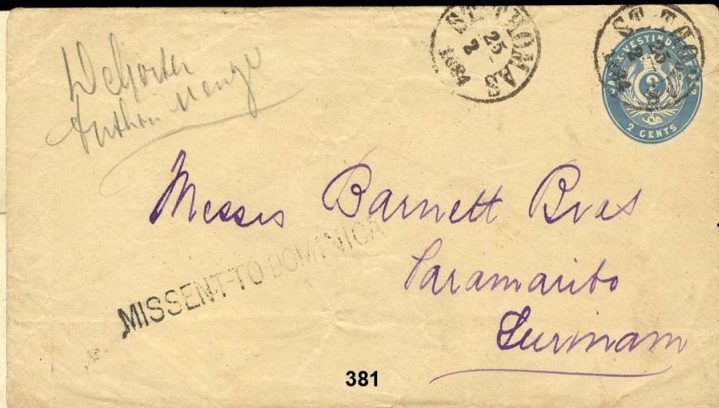 ST. THOMAS
25
2
1884
ST. THOMAS
25
2
VESTINDI
2
2 CENTS
Messrs Barnett Bros
Paramaribo
Surinam
MISSENT-TO-DOMINICA
381